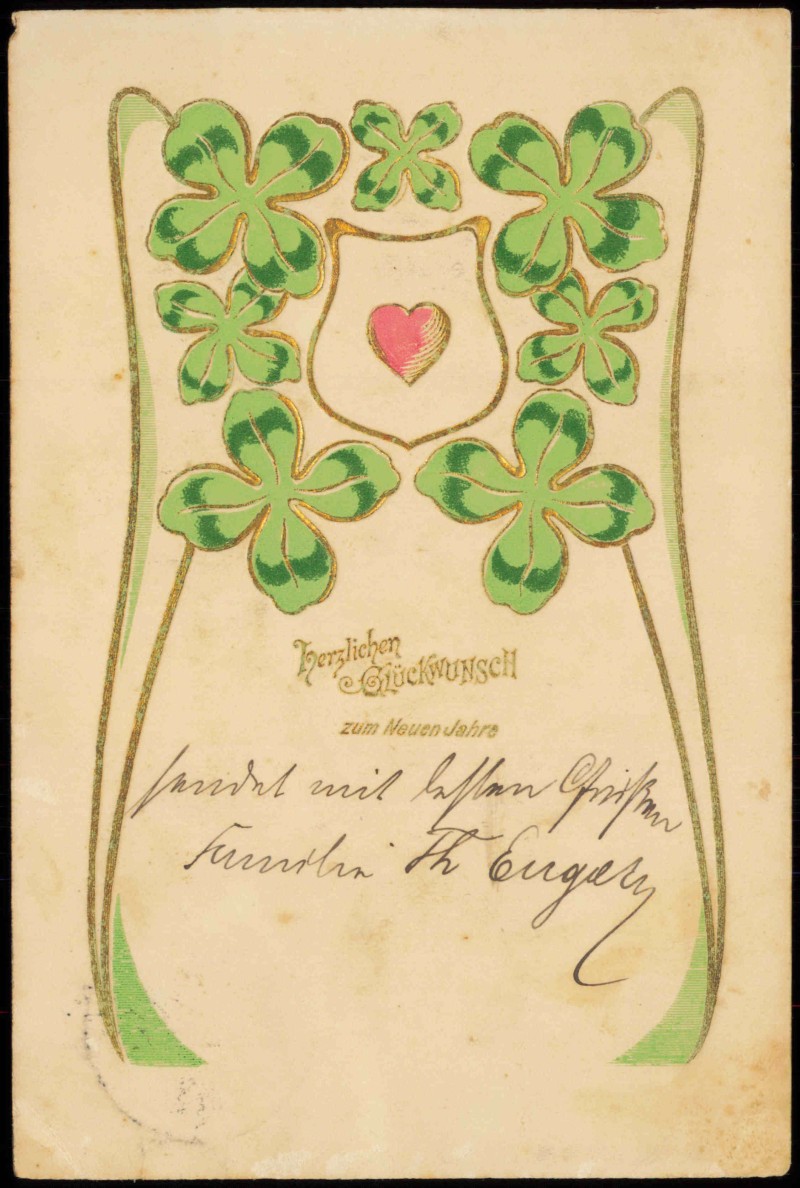 Herzlichen
Glückwunsch
zum Neuen Jahre
sendet mit besten Grüßen
Familie Th